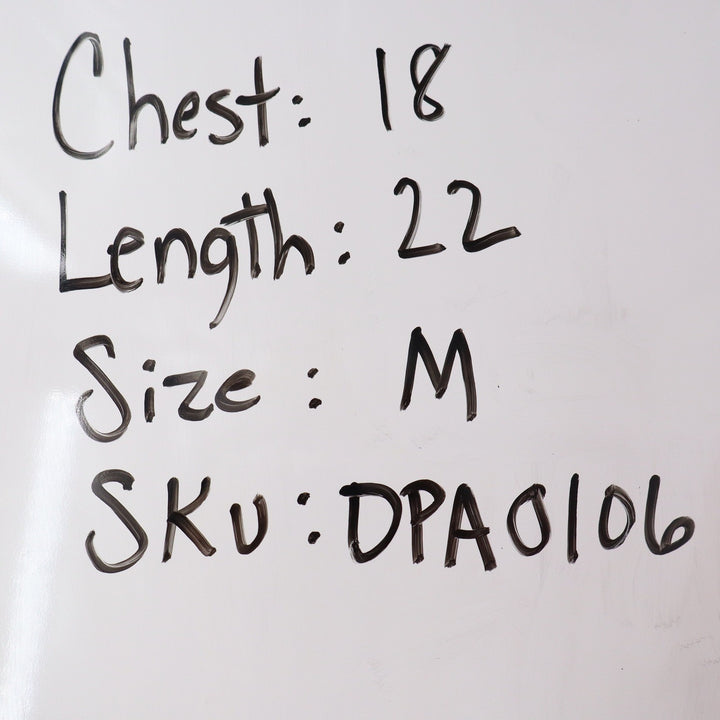 Chest: 18
Length: 22
Size: M
SKU: DPA0106